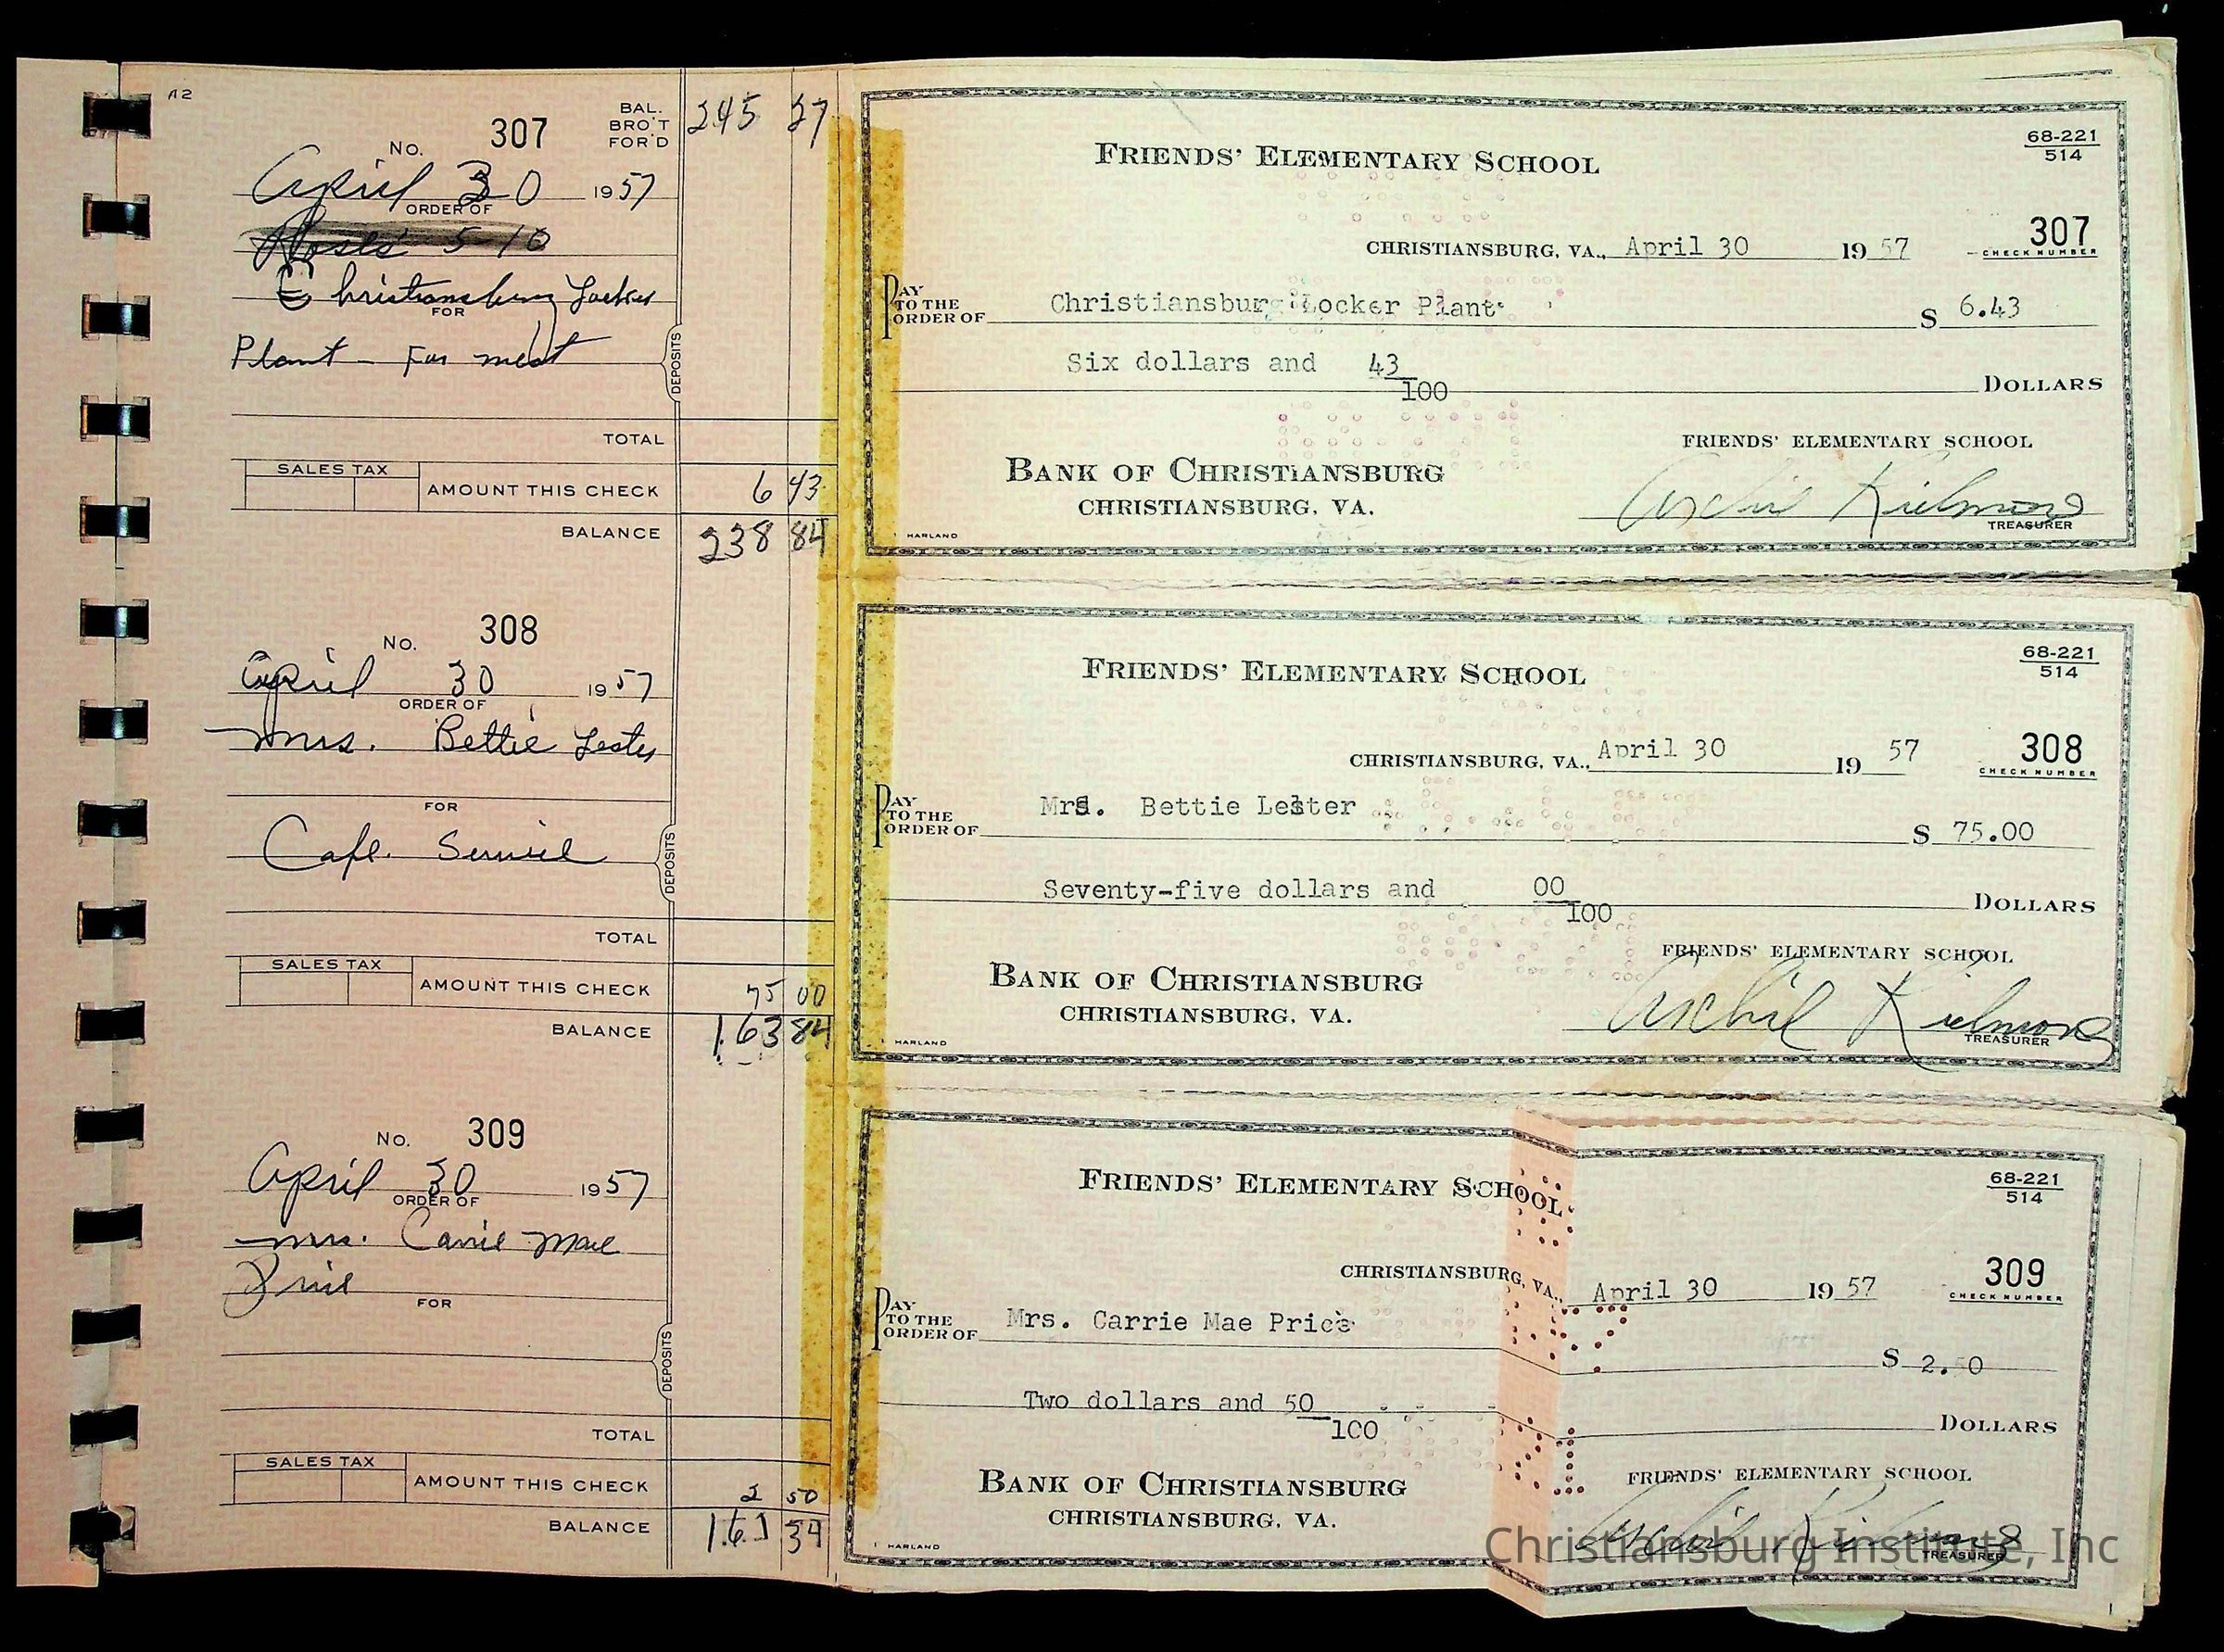 A2
No. 307
BAL. BRO'T FOR'D 245 27
April 30 1957
ORDER OF
Roses 5 10
Christiansburg Locker
FOR
Plant - For meat
DEPOSITS
TOTAL
SALES TAX
AMOUNT THIS CHECK 6 43
BALANCE 238 84
No. 308
April 30 1957
ORDER OF
Mrs. Bettie Lester
FOR
Cafe. Service
DEPOSITS
TOTAL
SALES TAX
AMOUNT THIS CHECK 75 00
BALANCE 163 84
No. 309
April 30 1957
ORDER OF
Mrs. Carrie Mae
Price
FOR
DEPOSITS
TOTAL
SALES TAX
AMOUNT THIS CHECK 2 50
BALANCE 161 34
FRIENDS' ELEMENTARY SCHOOL
68-221
514
CHRISTIANSBURG, VA., April 30 19 57
307
CHECK NUMBER
PAY TO THE ORDER OF Christiansburg Locker Plant $ 6.43
Six dollars and 43/100 DOLLARS
FRIENDS' ELEMENTARY SCHOOL
BANK OF CHRISTIANSBURG
CHRISTIANSBURG, VA.
TREASURER
HARLAND
FRIENDS' ELEMENTARY SCHOOL
68-221
514
CHRISTIANSBURG, VA., April 30 19 57
308
CHECK NUMBER
PAY TO THE ORDER OF Mrs. Bettie Lester $ 75.00
Seventy-five dollars and 00/100 DOLLARS
FRIENDS' ELEMENTARY SCHOOL
BANK OF CHRISTIANSBURG
CHRISTIANSBURG, VA.
TREASURER
HARLAND
FRIENDS' ELEMENTARY SCHOOL
68-221
514
CHRISTIANSBURG, VA., April 30 19 57
309
CHECK NUMBER
PAY TO THE ORDER OF Mrs. Carrie Mae Price $ 2.50
Two dollars and 50/100 DOLLARS
FRIENDS' ELEMENTARY SCHOOL
BANK OF CHRISTIANSBURG
CHRISTIANSBURG, VA.
TREASURER
HARLAND
Christiansburg Institute, Inc